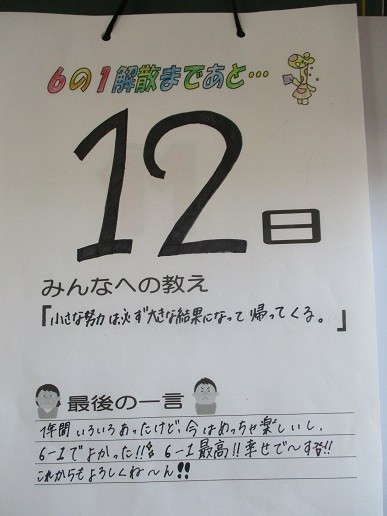 6の1解散まであと…
12
日
みんなへの教え
「小さな努力は必ず大きな結果になって帰ってくる。」
最後の一言
1年間いろいろあったけど、今はめっちゃ楽しいし、
6-1でよかった!! 6-1最高!!幸せで〜す!!
これからもよろしくね〜ん!!